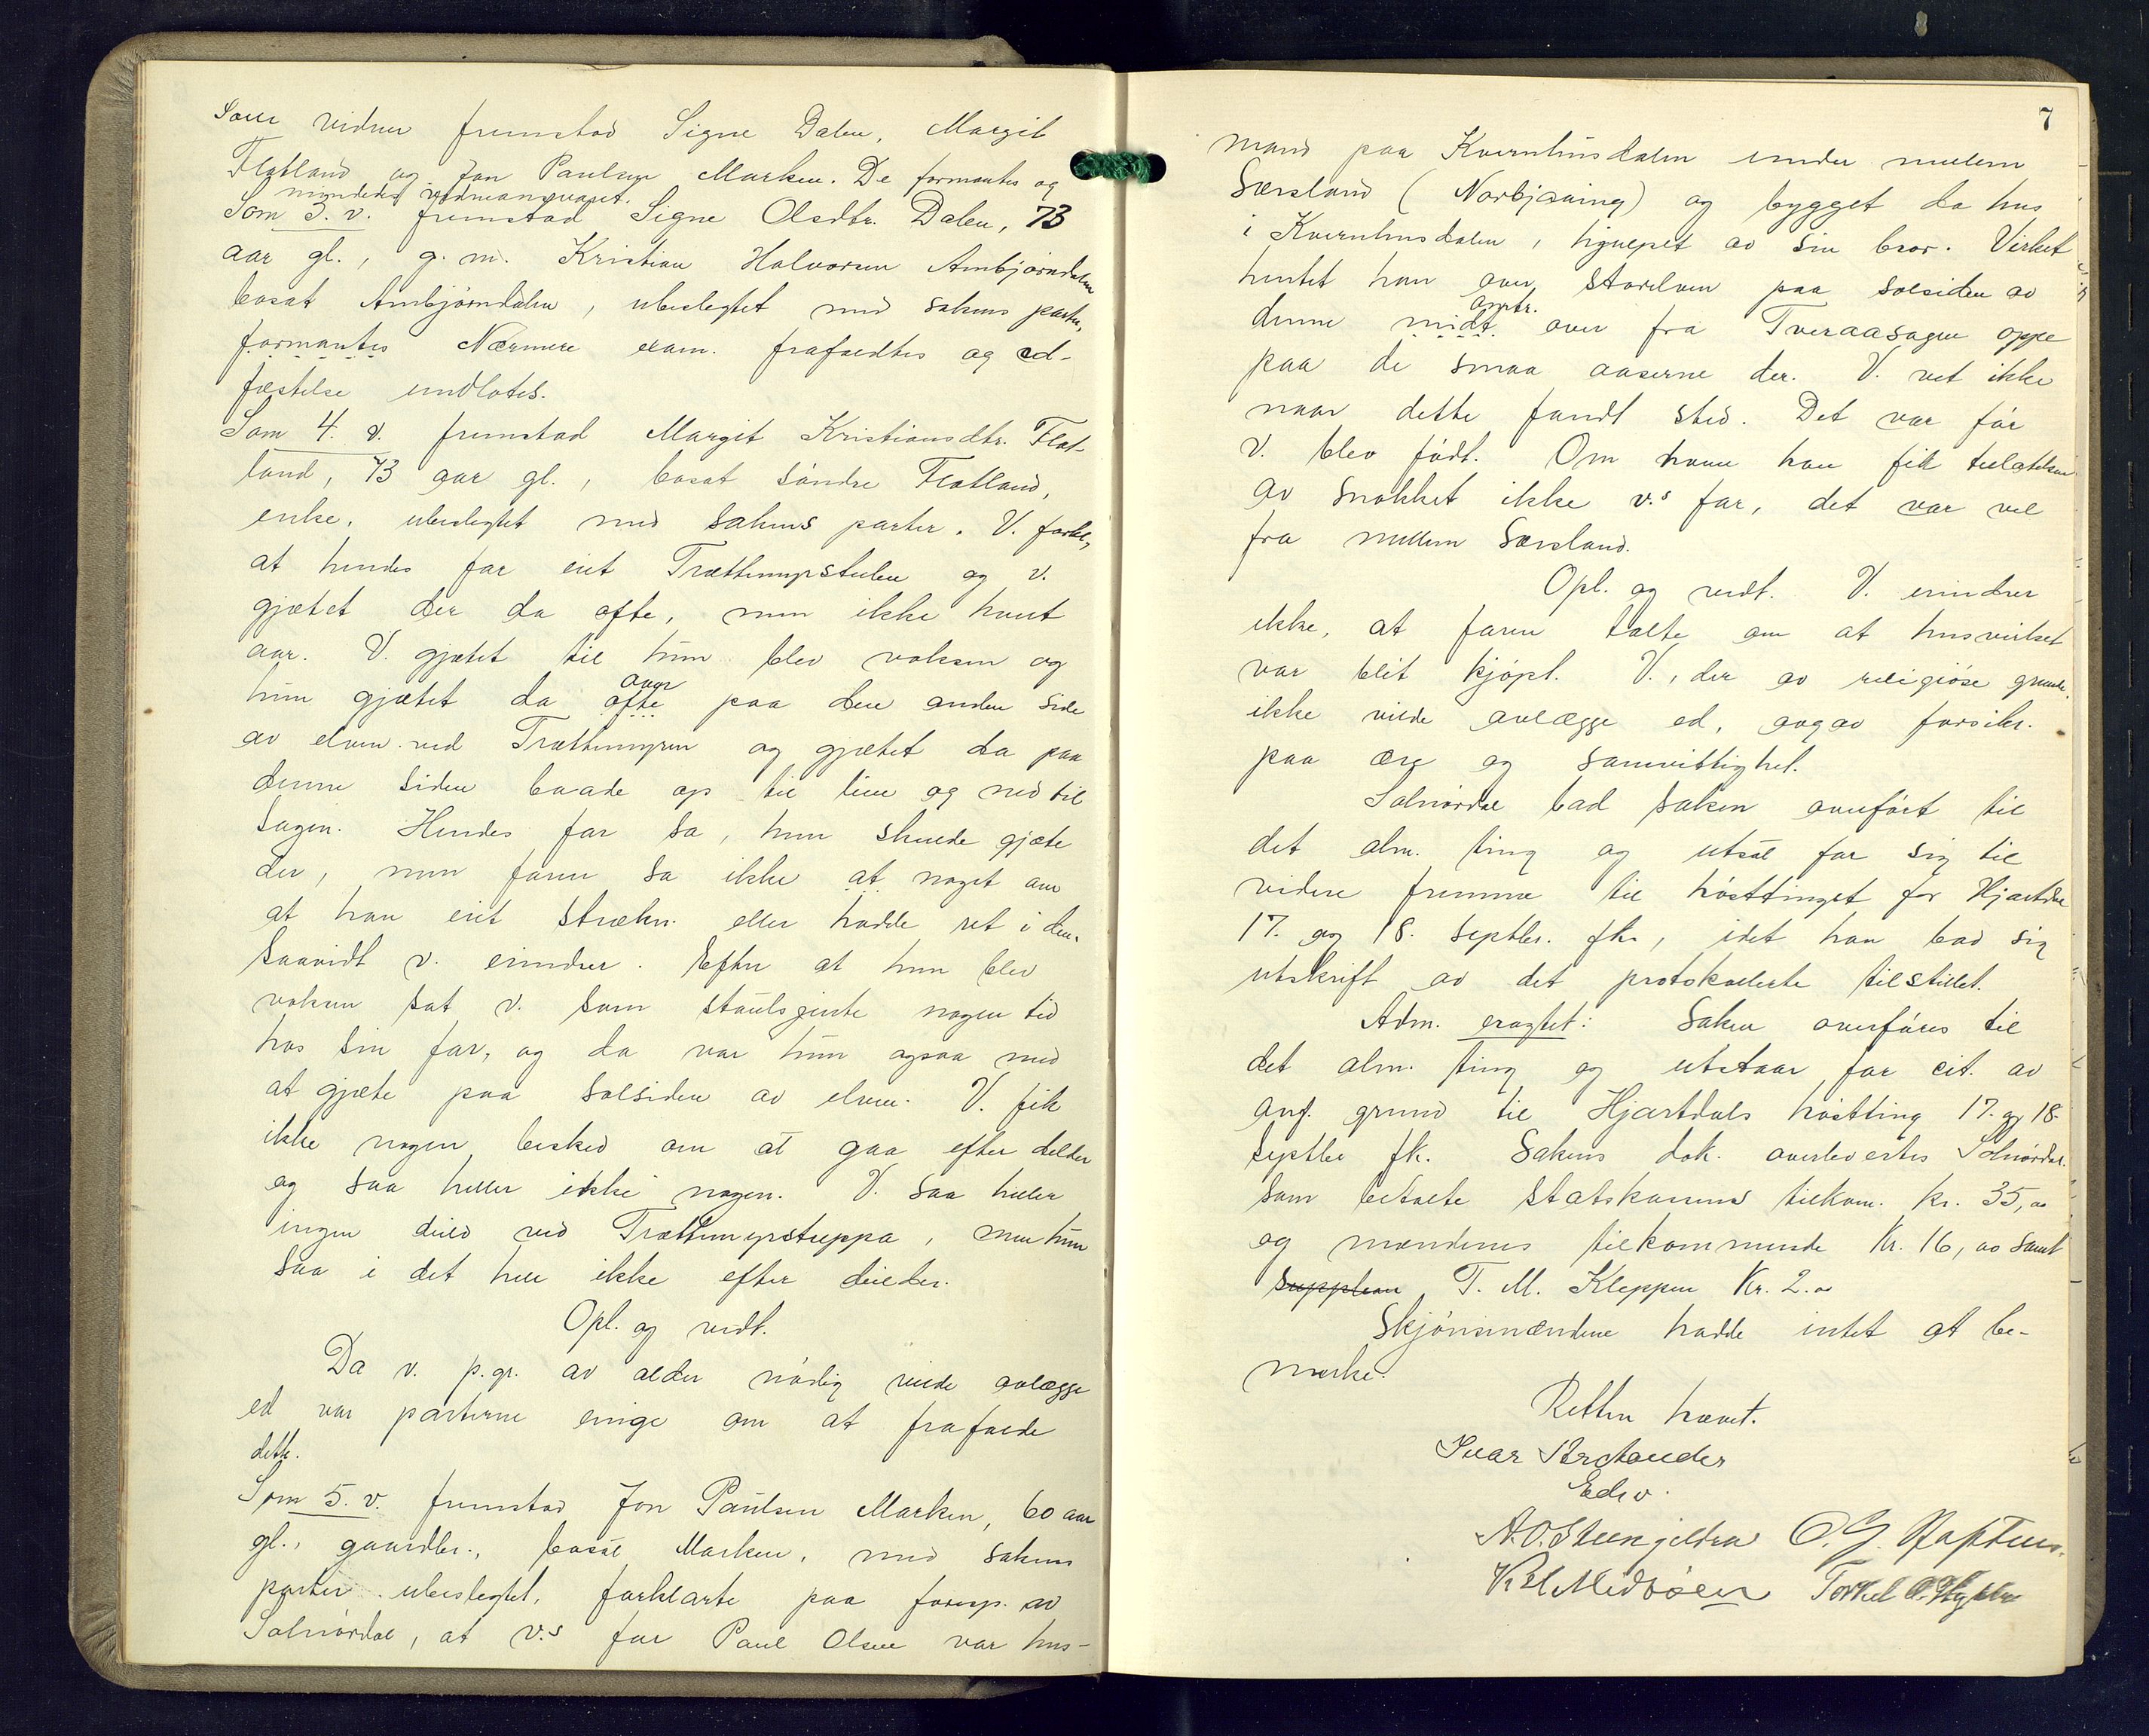 Som vidner fremstod Signe Dalen, Margit
Flatland og Jon Paulsen Marken. De formantes og
mindedes vidneansvaret.
Som 3. v. fremstod Signe Olsdtr. Dalen, 73
aar gl., g. m. Kristian Halvorsen Ambjørndalen
bosat Ambjørndalen, ubeslegtet med sakens parter,
formantes Nærmere exam. frafaldtes og ed-
fæstelse undlotes.
Som 4. v. fremstod Margit Kristiansdtr. Flat-
land, 73 aar gl., bosat søndre Flatland,
enke, ubeslegtet med sakens parter. V. forkl.,
at hendes far eiet Trættemyrstulen og v.
gjætet der da ofte, men ikke hvert
aar. V. gjætet til hun blev voksen og
over
hun gjætet da ofte paa den anden side
av elven ved Trættemyren og gjætet da paa
denne siden baade op til liene og ned til
sagen. Hendes far sa, hun skulde gjæte
der, men faren sa ikke at noget om
at han eiet strækn. eller hadde ret i den,
saavidt v. erindrer. Efter at hun blev
voksen sat v. som støulsjente nogen tid
hos sin far, og da var hun ogsaa med
at gjæte paa solsiden av elven. V. fik
ikke nogen besked om at gaa efter delder
og saa heller ikke nogen. V. saa heller
ingen deild ved Trættemyrstreppa, men hun
saa i det hele ikke efter deilder.
Opl. og vedt.
Da v. p.gr. av alder nødig vilde avlægge
ed var parterne enige om at frafalde
dette.
Som 5. v. fremstod Jon Paulsen Marken, 60 aar
gl., gaardbr., bosat Marken, med sakens
parter ubeslegtet, forklarte paa foresp. av
Solnørdal, at v.s far Paul Olsen var hus-
7
mand paa Kvernhusdalen under mellem
Særsland (Norbjøsning) og bygget da hus
i Kvernhusdalen, hjulpet av sin bror. Virket
hentet han over storelven paa solsiden av
omtr.
denne midt over fra Tveraasagen oppe
paa de smaa aaserne der. V. vet ikke
naar dette fandt sted. Det var før
v. blev født. Om hvem han fik tillatelsen
av snakket ikke v.s far, det var vel
fra mellem Særsland.
Opl. og vedt. V. erindrer
ikke, at faren talte om at husvirket
var blit kjøpt. V., der av religiøse grunde
ikke vilde avlægge ed, avgav forsikr.
paa ære og samvittighet.
Solnørdal bad saken overført til
det alm. ting og utsat for sig til
videre fremme til høsttinget for Hjartdal
17. og 18. septbr. fk., idet han bad sig
utskrift av det protokollerte tilstillet.
Adm. eragtet: Saken overføres til
det alm. ting og utstaar for cit. av
anf. grund til Hjartdals høstting 17. og 18.
septbr fk. Sakens dok. overlevertes Solnørdal.
som betalte statskassens tilkom. kr. 35,00
og mændenes tilkommende kr. 16,00 samt
supplean T. M. Kleppen kr. 2.00
Skjønsmændene hadde intet at be-
merke.
Retten hævet.
Ivar
Edsv.